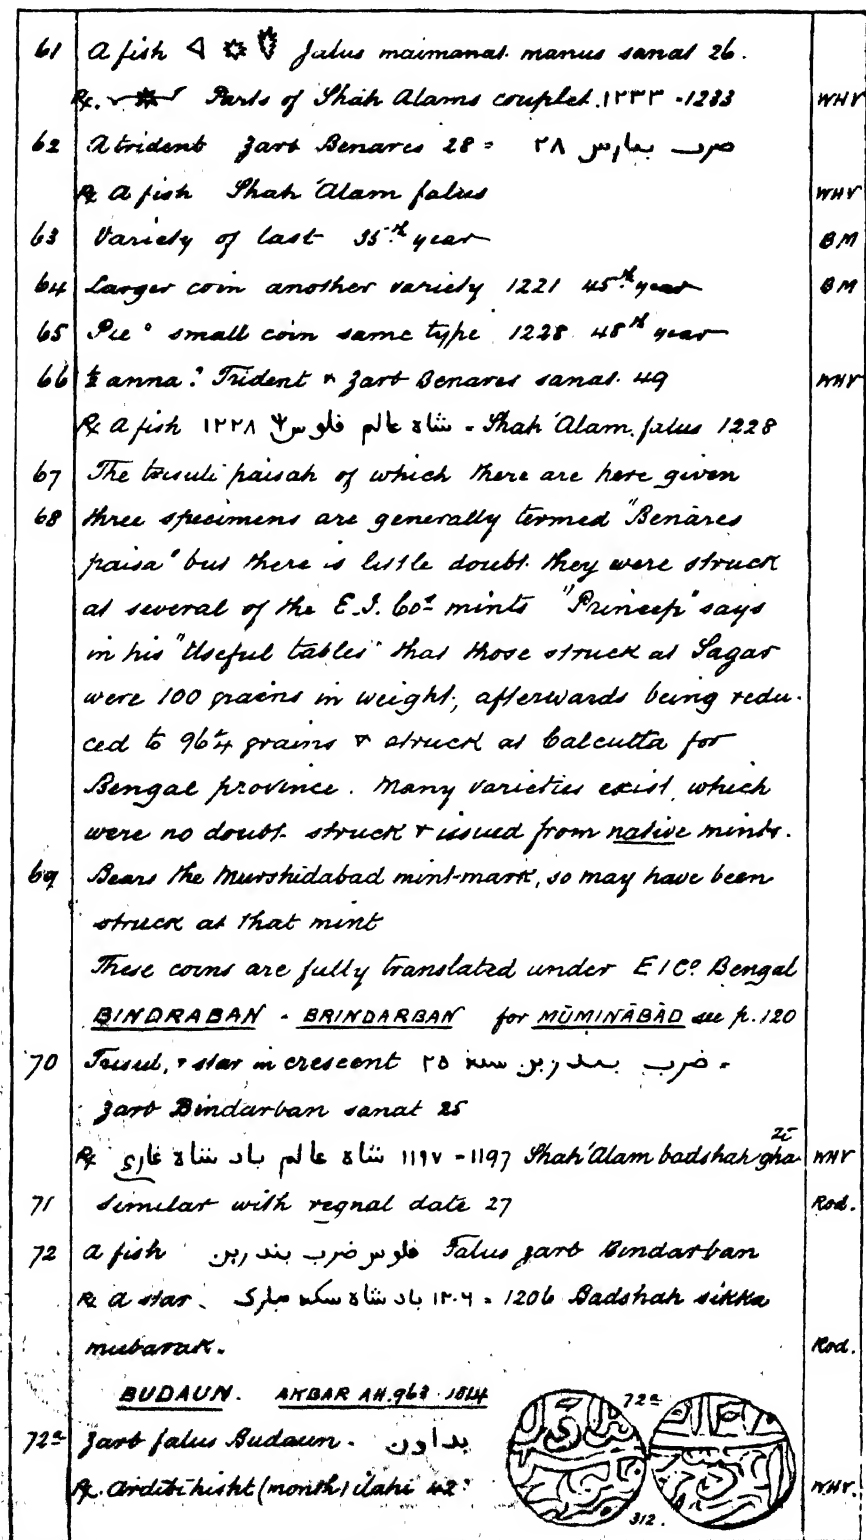 61 A fish falus maimanat manus sanat 26.
Rx. Parts of Shah Alams couplet. ١٢٣٣ - 1233 WHV
62 A trident Zarb Benares 28 = ضرب بنارس ٢٨
Rx A fish Shah 'Alam falus WHV
63 Variety of last 35th year BM
64 Larger coin another variety 1221 45th year BM
65 Pie ° small coin same type 1228 48th year
66 ½ anna? Trident & Zarb Benares sanat 49 WHV
Rx A fish ١٢٢٨ شاه عالم فلوس - Shah 'Alam falus 1228
67 The trisuli paisah of which there are here given
68 three specimens are generally termed "Benares
paisa" but there is little doubt they were struck
at several of the E.I. Co⁠s mints "Prinsep" says
in his "Useful tables" that those struck at Sagar
were 100 grains in weight, afterwards being redu-
ced to 96¼ grains & struck at Calcutta for
Bengal province. Many varieties exist, which
were no doubt struck & issued from native mints.
69 Bears the Murshidabad mint-mark, so may have been
struck at that mint
These coins are fully translated under E I Co Bengal
BINDRABAN - BRINDARBAN for MŪMINĀBĀD see p. 120
70 Trisul, & star in crescent ضرب بندربن سنة ٢٥ =
Zarb Bindarban sanat 25
Rx شاه عالم باد شاه غازي ١١٩٧ = 1197 Shah 'Alam badshah ghazi WHV
71 Similar with regnal date 27 Rod.
72 A fish فلوس ضرب بندربن Falus zarb Bindarban
Rx A star. ١٢٠٦ باد شاه سكه مبارك = 1206 Badshah sikka
mubarak. Rod.
BUDAUN. AKBAR AH. 963-1014 72a
72a Zarb falus Budaun. بداون
Rx. Ardibihisht (month) ilahi 42 312. WHV.